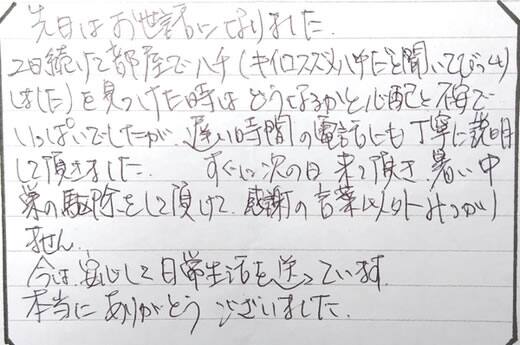 先日はお世話になりました.
2日続けて部屋でハチ(キイロスズメバチだと聞いてびっくり
しました)を見つけた時はどうなるかと心配と不安で
いっぱいでしたが、遅い時間の電話にも丁寧に説明
して頂きました. すぐに次の日来て頂き暑い中
巣の駆除をして頂けて、感謝の言葉以外みつかり
ません.
今は安心して日常生活を送っています.
本当にありがとうございました.